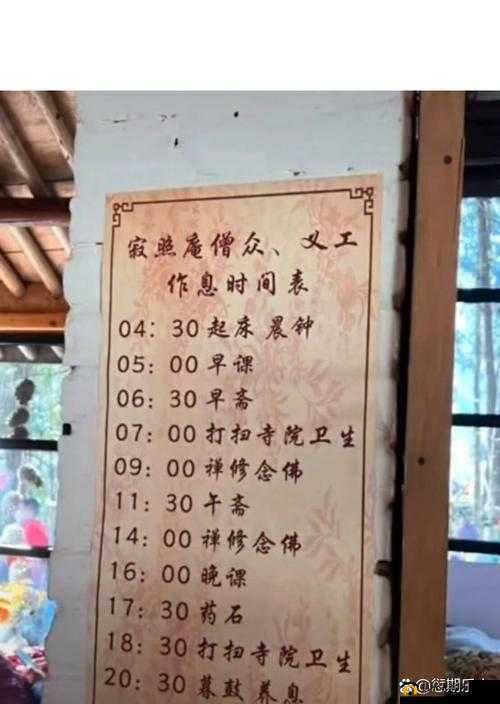 寂照庵僧众、义工
作息时间表
04：30 起床 晨钟
05：00 早课
06：30 早斋
07：00 打扫寺院卫生
09：00 禅修念佛
11：30 午斋
14：00 禅修念佛
16：00 晚课
17：30 药石
18：30 打扫寺院卫生
20：30 暮鼓 养息
@愆期乐